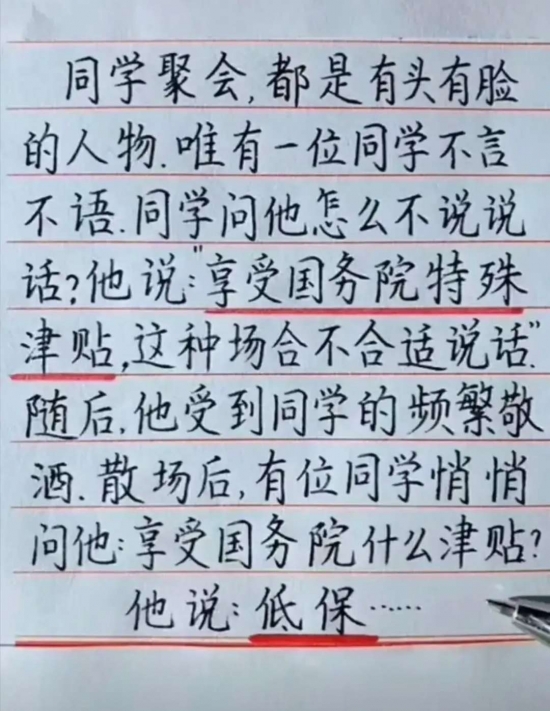 同学聚会,都是有头有脸
的人物.唯有一位同学不言
不语.同学问他怎么不说说
话?他说:"享受国务院特殊
津贴,这种场合不合适说话".
随后,他受到同学的频繁敬
酒.散场后,有位同学悄悄
问他:享受国务院什么津贴?
他说:低保……